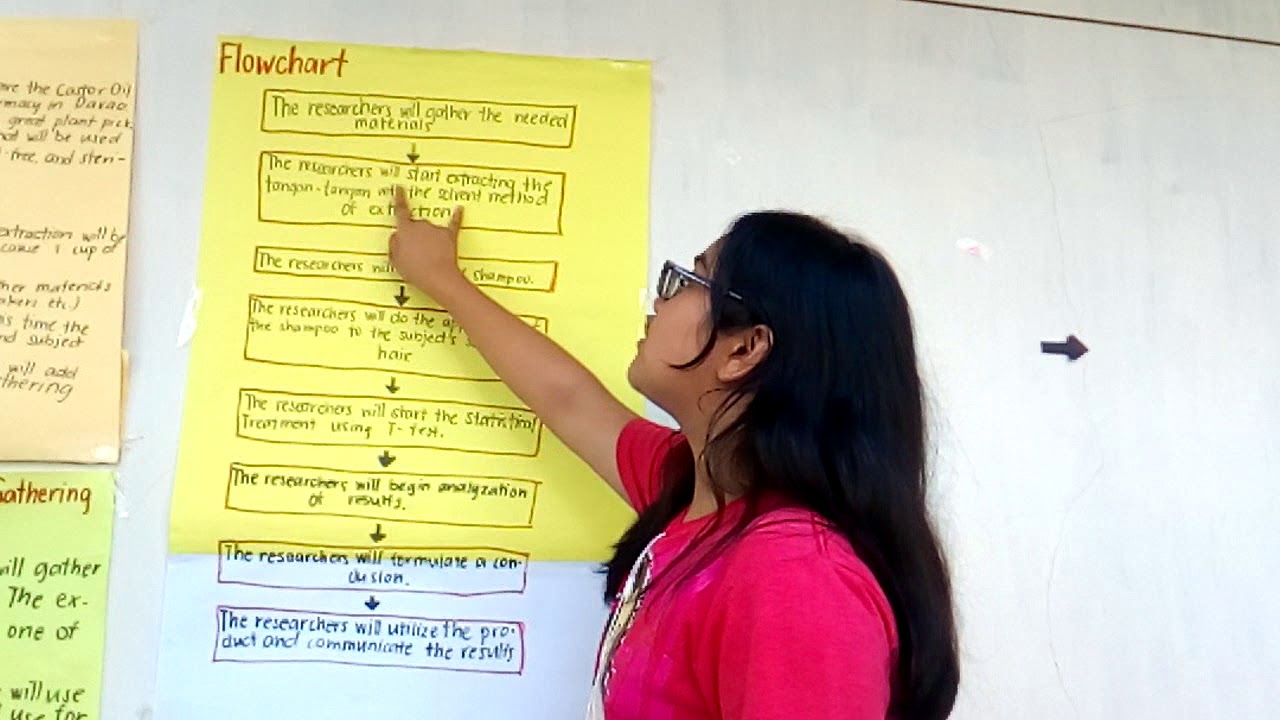 ore the Castor Oil
macy in Davao
great plant pick
hat will be used
-free, and steri-
extraction will be
cause 1 cup of
her materials
aken etc.)
is time the
nd subject
will add
thering
Gathering
will gather
The ex-
one of
will use
use for
Flowchart
The researchers will gather the needed
materials
The researchers will start extracting the
tangan-tangan with the solvent method
of extraction
The researchers will shampoo.
The researchers will do the
the shampoo to the subject's
hair
The researchers will start the Statistical
Treatment using T-Test.
The researchers will begin analyzation
of results.
The researchers will formulate a con-
clusion.
The researchers will utilize the pro-
duct and communicate the results